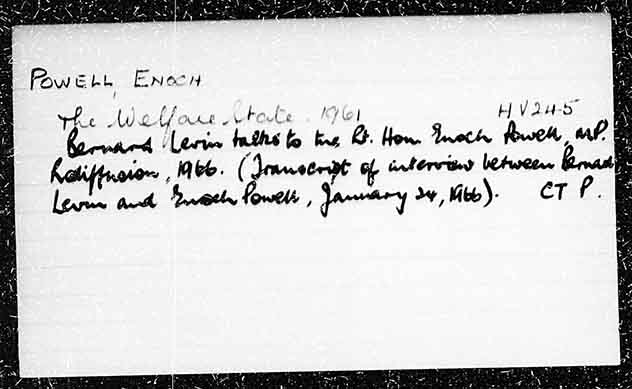 POWELL, ENOCH
The Welfare State. 1961 HV245
Bernard Levin talks to the Rt. Hon. Enoch Powell, M.P.
Rediffusion, 1966. (Transcript of interview between Bernard
Levin and Enoch Powell, January 24, 1966). CT P.